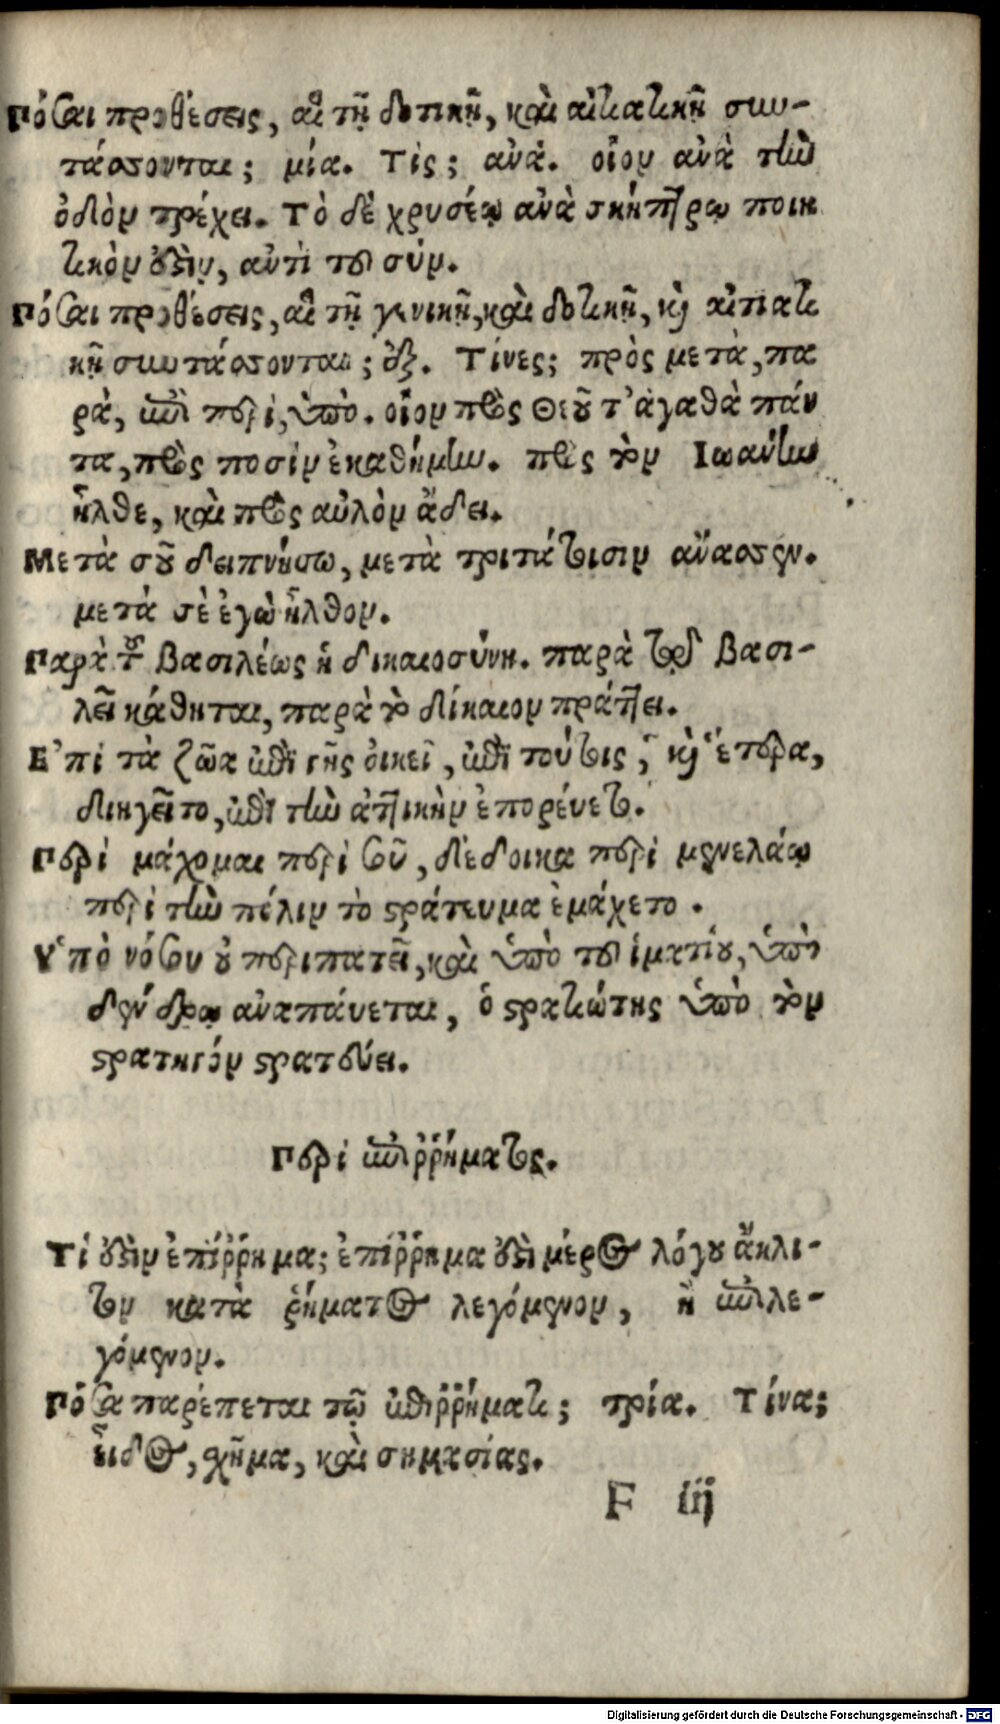 Πόσαι προθέσεις, αἳ τῇ δοτικῇ, καὶ αἰτιατικῇ συν-
τάσσονται; μία. Τίς; ἀνά. οἷον ἀνὰ τὴν
ὁδὸν τρέχει. Τὸ δὲ χρυσέῳ ἀνὰ σκήπτρῳ ποιη
τικὸν ἐστὶν, ἀντὶ τοῦ σύν.
Πόσαι προθέσεις, αἳ τῇ γενικῇ, καὶ δοτικῇ, καὶ αἰτιατι
κῇ συντάσσονται; ἕξ. Τίνες; πρὸς μετὰ, πα
ρὰ, ἐπὶ περὶ, ὑπὸ. οἷον πρὸς Θεοῦ τ' ἀγαθὰ πάν
τα, πρὸς ποσὶν ἐκαθήμην. πρὸς τὸν Ιωάννην
ἦλθε, καὶ πρὸς αὐλὸν ᾄδει.
Μετὰ σοῦ δειπνήσω, μετὰ τριτάτοισιν ἄνασσεν.
μετὰ σὲ ἐγὼ ἦλθον.
Παρὰ τοῦ βασιλέως ἡ δικαιοσύνη. παρὰ τῷ βασι-
λεῖ κάθηται, παρὰ τὸ δίκαιον πράττει.
Ε'πὶ τὰ ζῶα ἐπὶ γῆς οἰκεῖ, ἐπὶ τούτοις, καὶ ἕτερα,
διηγεῖτο, ἐπὶ τὴν ἀττικὴν ἐπορεύετο.
Περὶ μάχομαι περὶ σοῦ, δέδοικα περὶ μενελάῳ
περὶ τὴν πόλιν τὸ στράτευμα ἐμάχετο.
Υ'πὸ νόσου οὐ περιπατεῖ, καὶ ὑπὸ τοῦ ἱματίου, ὑπὸ
δένδρῳ ἀναπαύεται, ὁ στρατιώτης ὑπὸ τὸν
στρατηγόν στρατεύει.
Περὶ ἐπιρρήματος.
Τί ἐστὶν ἐπίρρημα; ἐπίρρημα ἐστὶ μέρος λόγου ἄκλι-
τον κατὰ ῥήματος λεγόμενον, ἢ ἐπιλε-
γόμενον.
Πόσα παρέπεται τῷ ἐπιρρήματι; τρία. Τίνα;
εἶδος, σχῆμα, καὶ σημασίας.
F iij
Digitalisierung gefördert durch die Deutsche Forschungsgemeinschaft - DFG